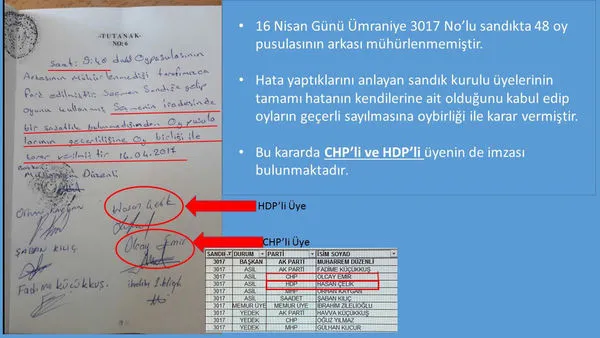 TUTANAK
NO: 6
Saat: 9:40 dad Oy pusulasının
Arkasının Mühürlenmediği tarafımızca
Fark edilmiştir. Seçmen Sandığa gelip
oyunu kullanmış Seçmenin iradesinde
bir sakatlık bulunmadığından Oy pusula
larının geçerliliğine Oy birliği ile
karar verilmiştir 16.04.2017
Başkan
Muharrem Düzenli
Orhan Kaygan
Hasan Çelik
ŞABAN KILIÇ
Olcay Emir
Fadime Küçükkuş.
• 16 Nisan Günü Ümraniye 3017 No'lu sandıkta 48 oy
pusulasının arkası mühürlenmemiştir.
• Hata yaptıklarını anlayan sandık kurulu üyelerinin
tamamı hatanın kendilerine ait olduğunu kabul edip
oyların geçerli sayılmasına oybirliği ile karar vermiştir.
• Bu kararda CHP'li ve HDP'li üyenin de imzası
bulunmaktadır.
HDP'li Üye
CHP'li Üye
SANDIK DURUM PARTİ İSİM SOYAD
3017 BAŞKAN AK PARTİ MUHARREM DÜZENLİ
3017 ASİL AK PARTİ FADİME KÜÇÜKKUŞ
3017 ASİL CHP OLCAY EMİR
3017 ASİL HDP HASAN ÇELİK
3017 ASİL MHP ORHAN KAYGAN
3017 ASİL SAADET ŞABAN KILIÇ
3017 MEMUR ÜYE MEMUR ÜYE İBRAHİM ZİLELİOĞLU
3017 YEDEK AK PARTİ HAVVA KÜÇÜKKUŞ
3017 YEDEK CHP OĞUZ YILMAZ
3017 YEDEK MHP GÜLHAN KUCUR